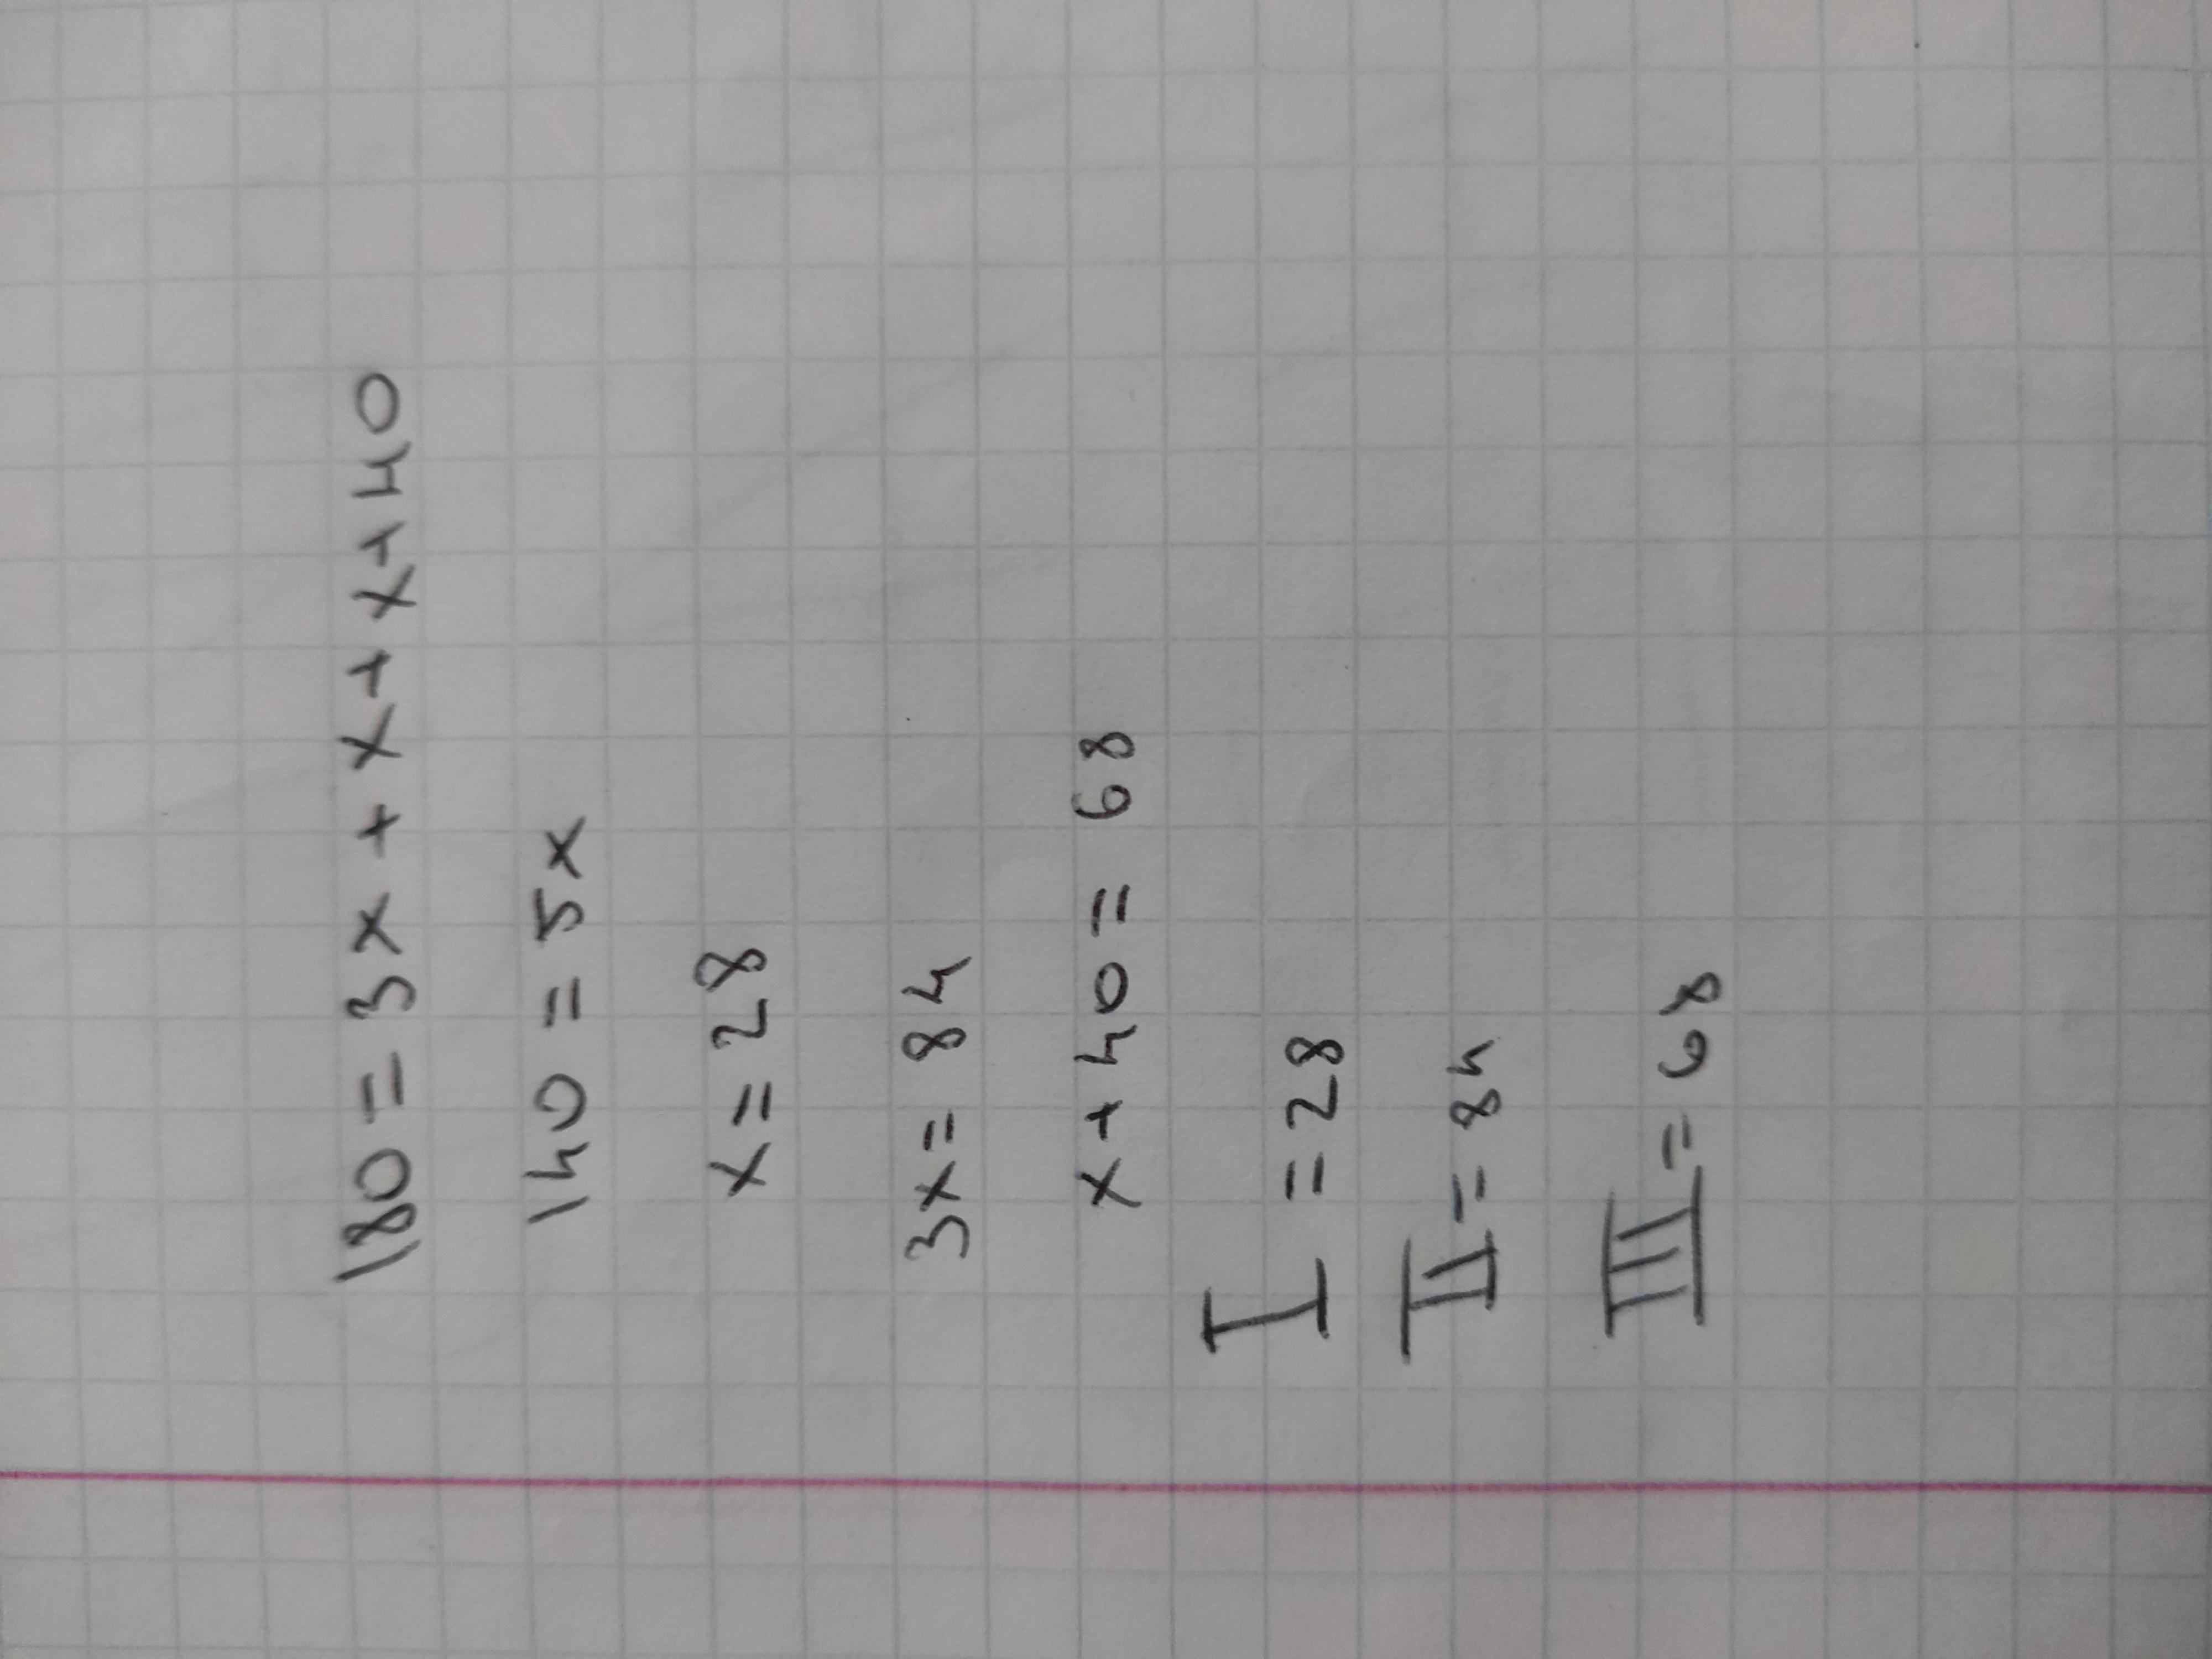 180 = 3x + x + x+40
140 = 5x
x = 28
3x = 84
x + 40 = 68
I = 28
II = 84
III = 68